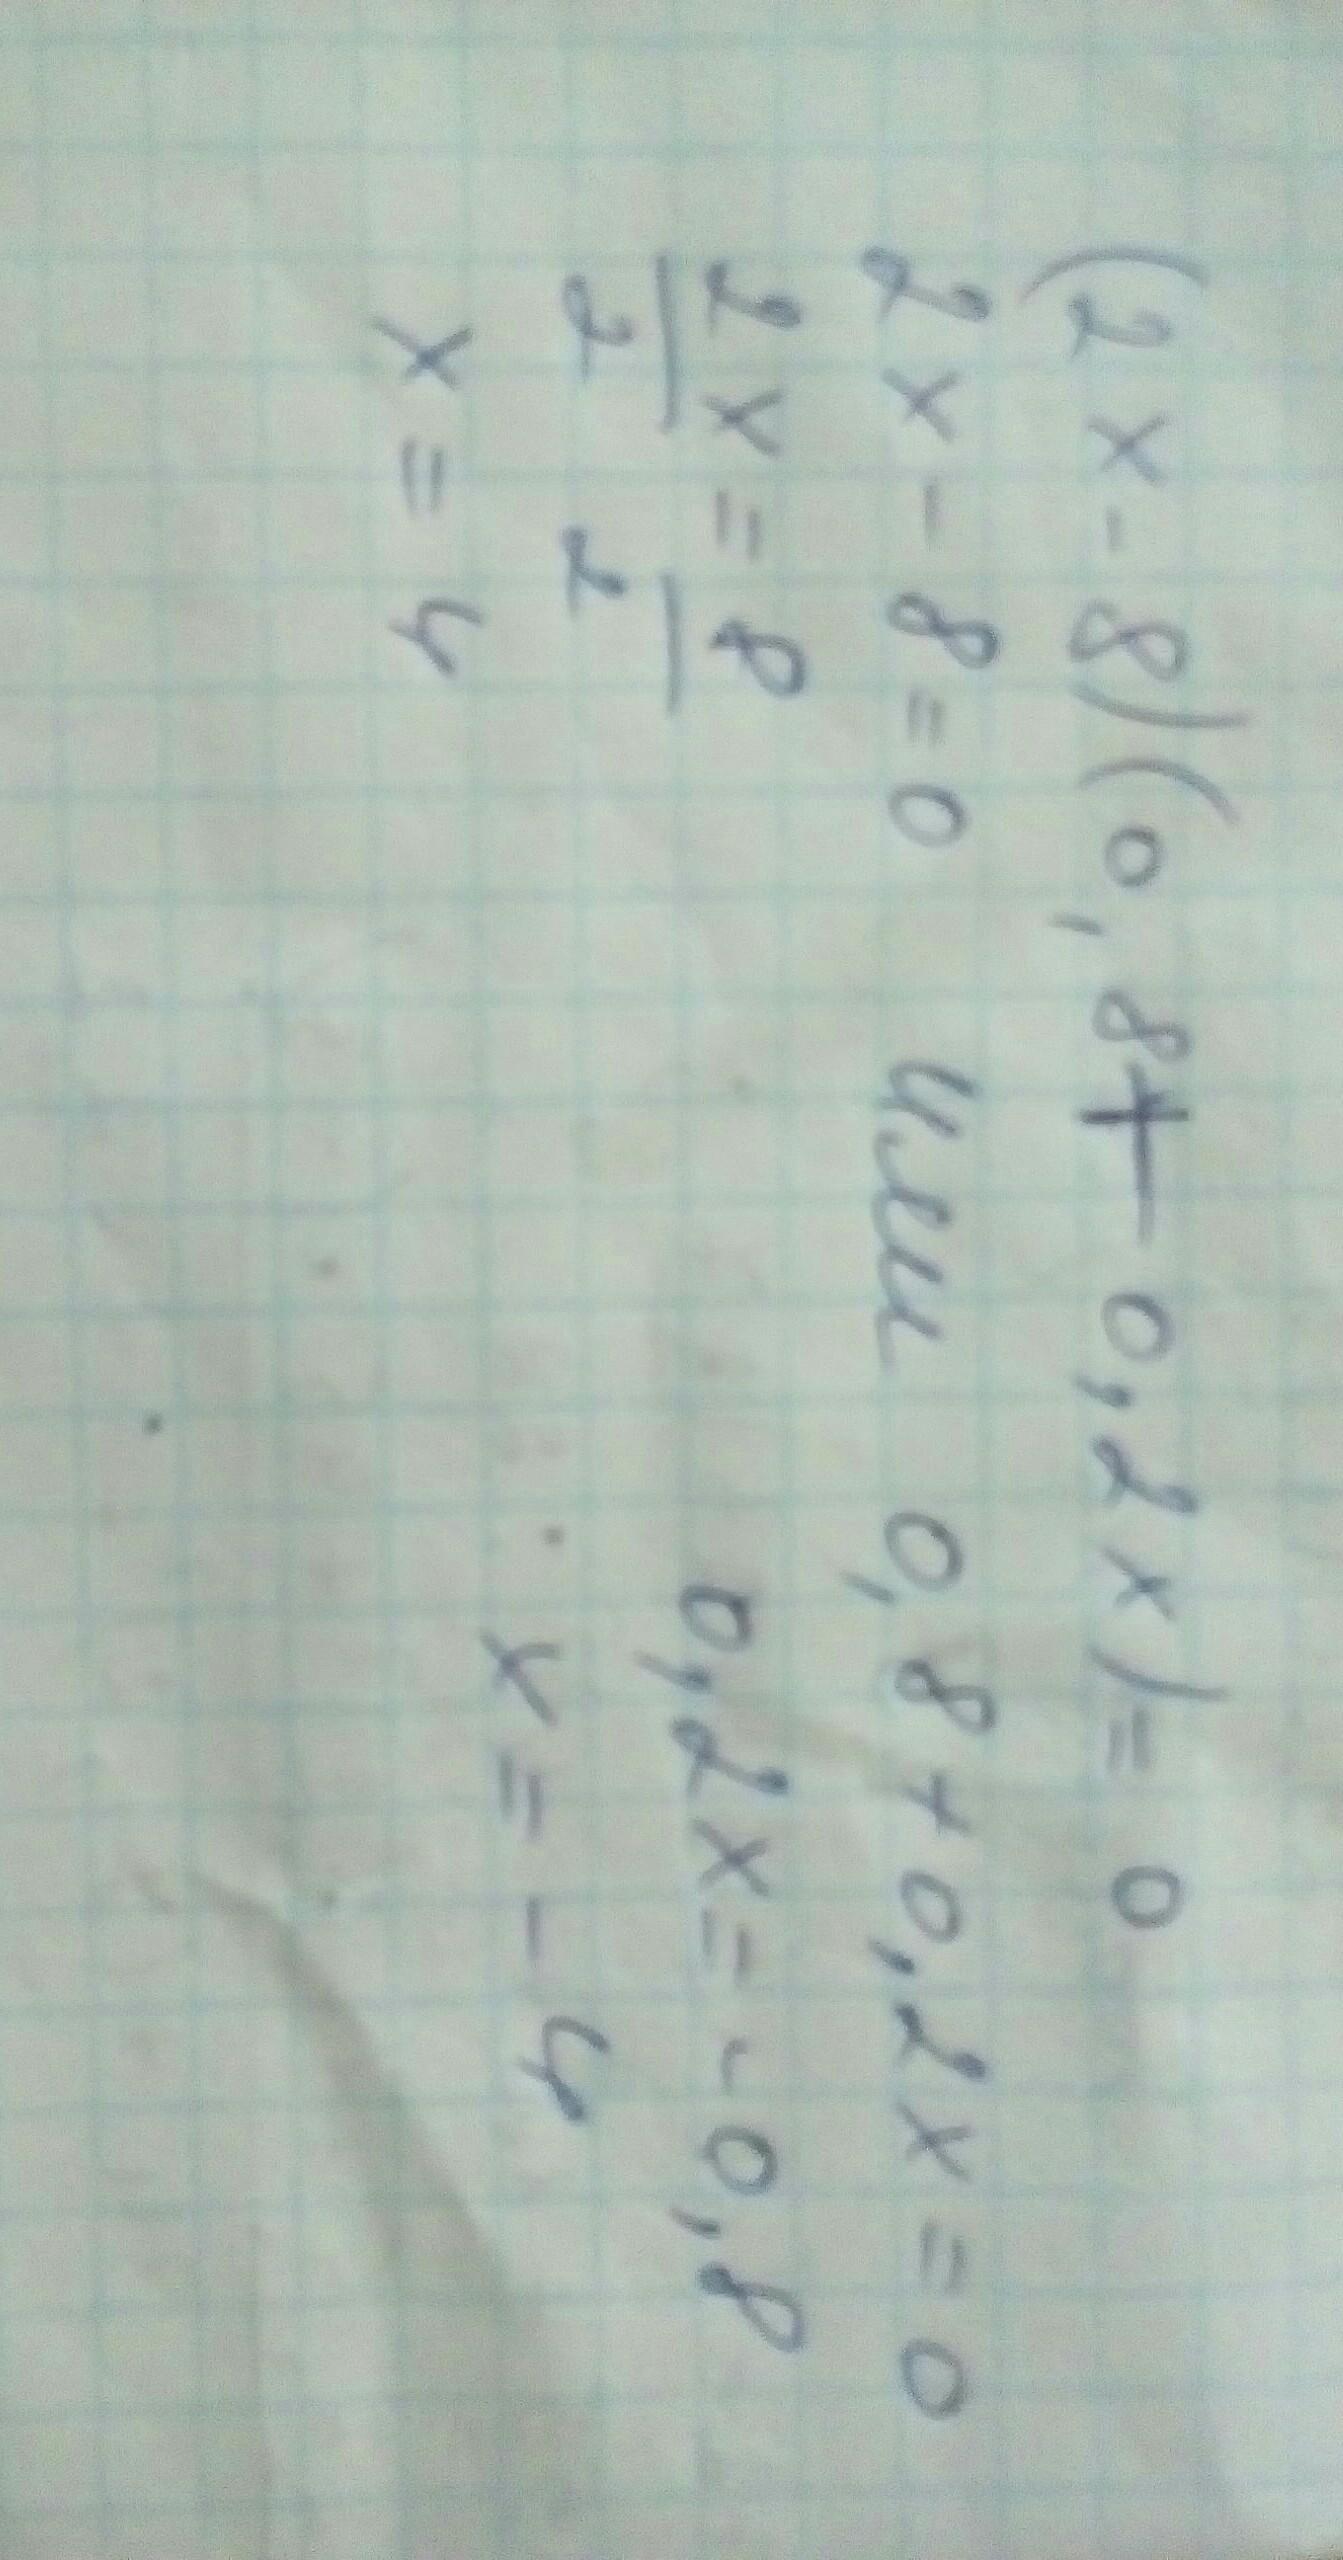 (2x-8)(0,8+0,2x)=0
2x-8=0 или 0,8+0,2x=0
2x=8 0,2x=-0,8
2 2 x=-4
x=4